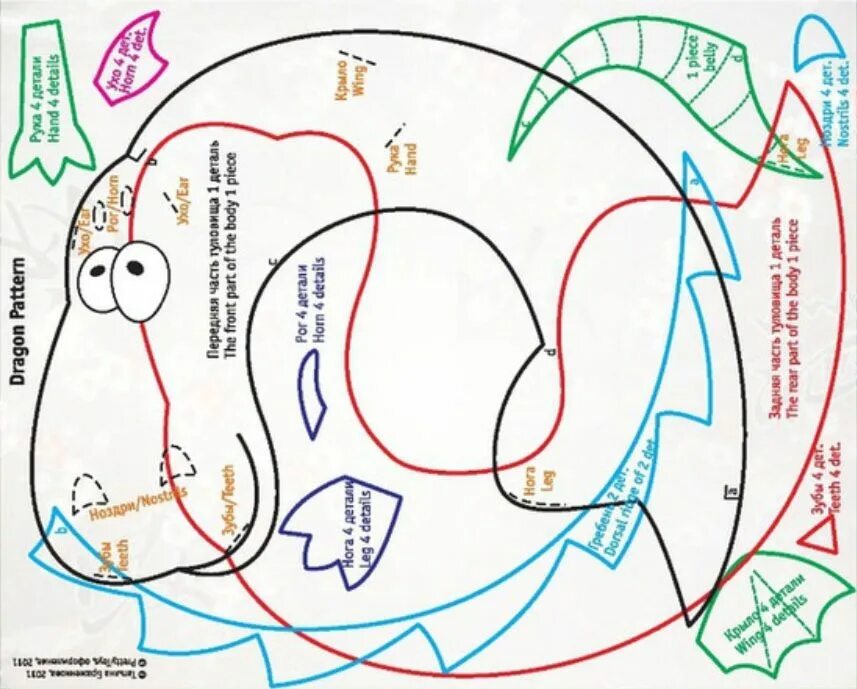 Dragon Pattern
Рука 4 детали
Hand 4 details
Ухо 4 дет.
Horn 4 det.
Крыло
Wing
Рука
Hand
1 piece
belly
c
d
Ноздри 4 дет.
Nostrils 4 det.
Нога
Leg
a
b
Ухо/Ear
Рог/Horn
Ухо/Ear
Передняя часть туловища 1 деталь
The front part of the body 1 piece
c
Рог 4 детали
Horn 4 details
d
Задняя часть туловища 1 деталь
The rear part of the body 1 piece
Ноздри/Nostrils
Зубы/Teeth
Зубы
Teeth
b
Нога 4 детали
Leg 4 details
Нога
Leg
Гребень 2 дет.
Dorsal ridge of 2 det.
a
Зубы 4 дет.
Teeth 4 det.
Крыло 4 детали
Wing 4 details
© Татьяна Браженкова, 2011
© PrettyToys, оформление, 2011